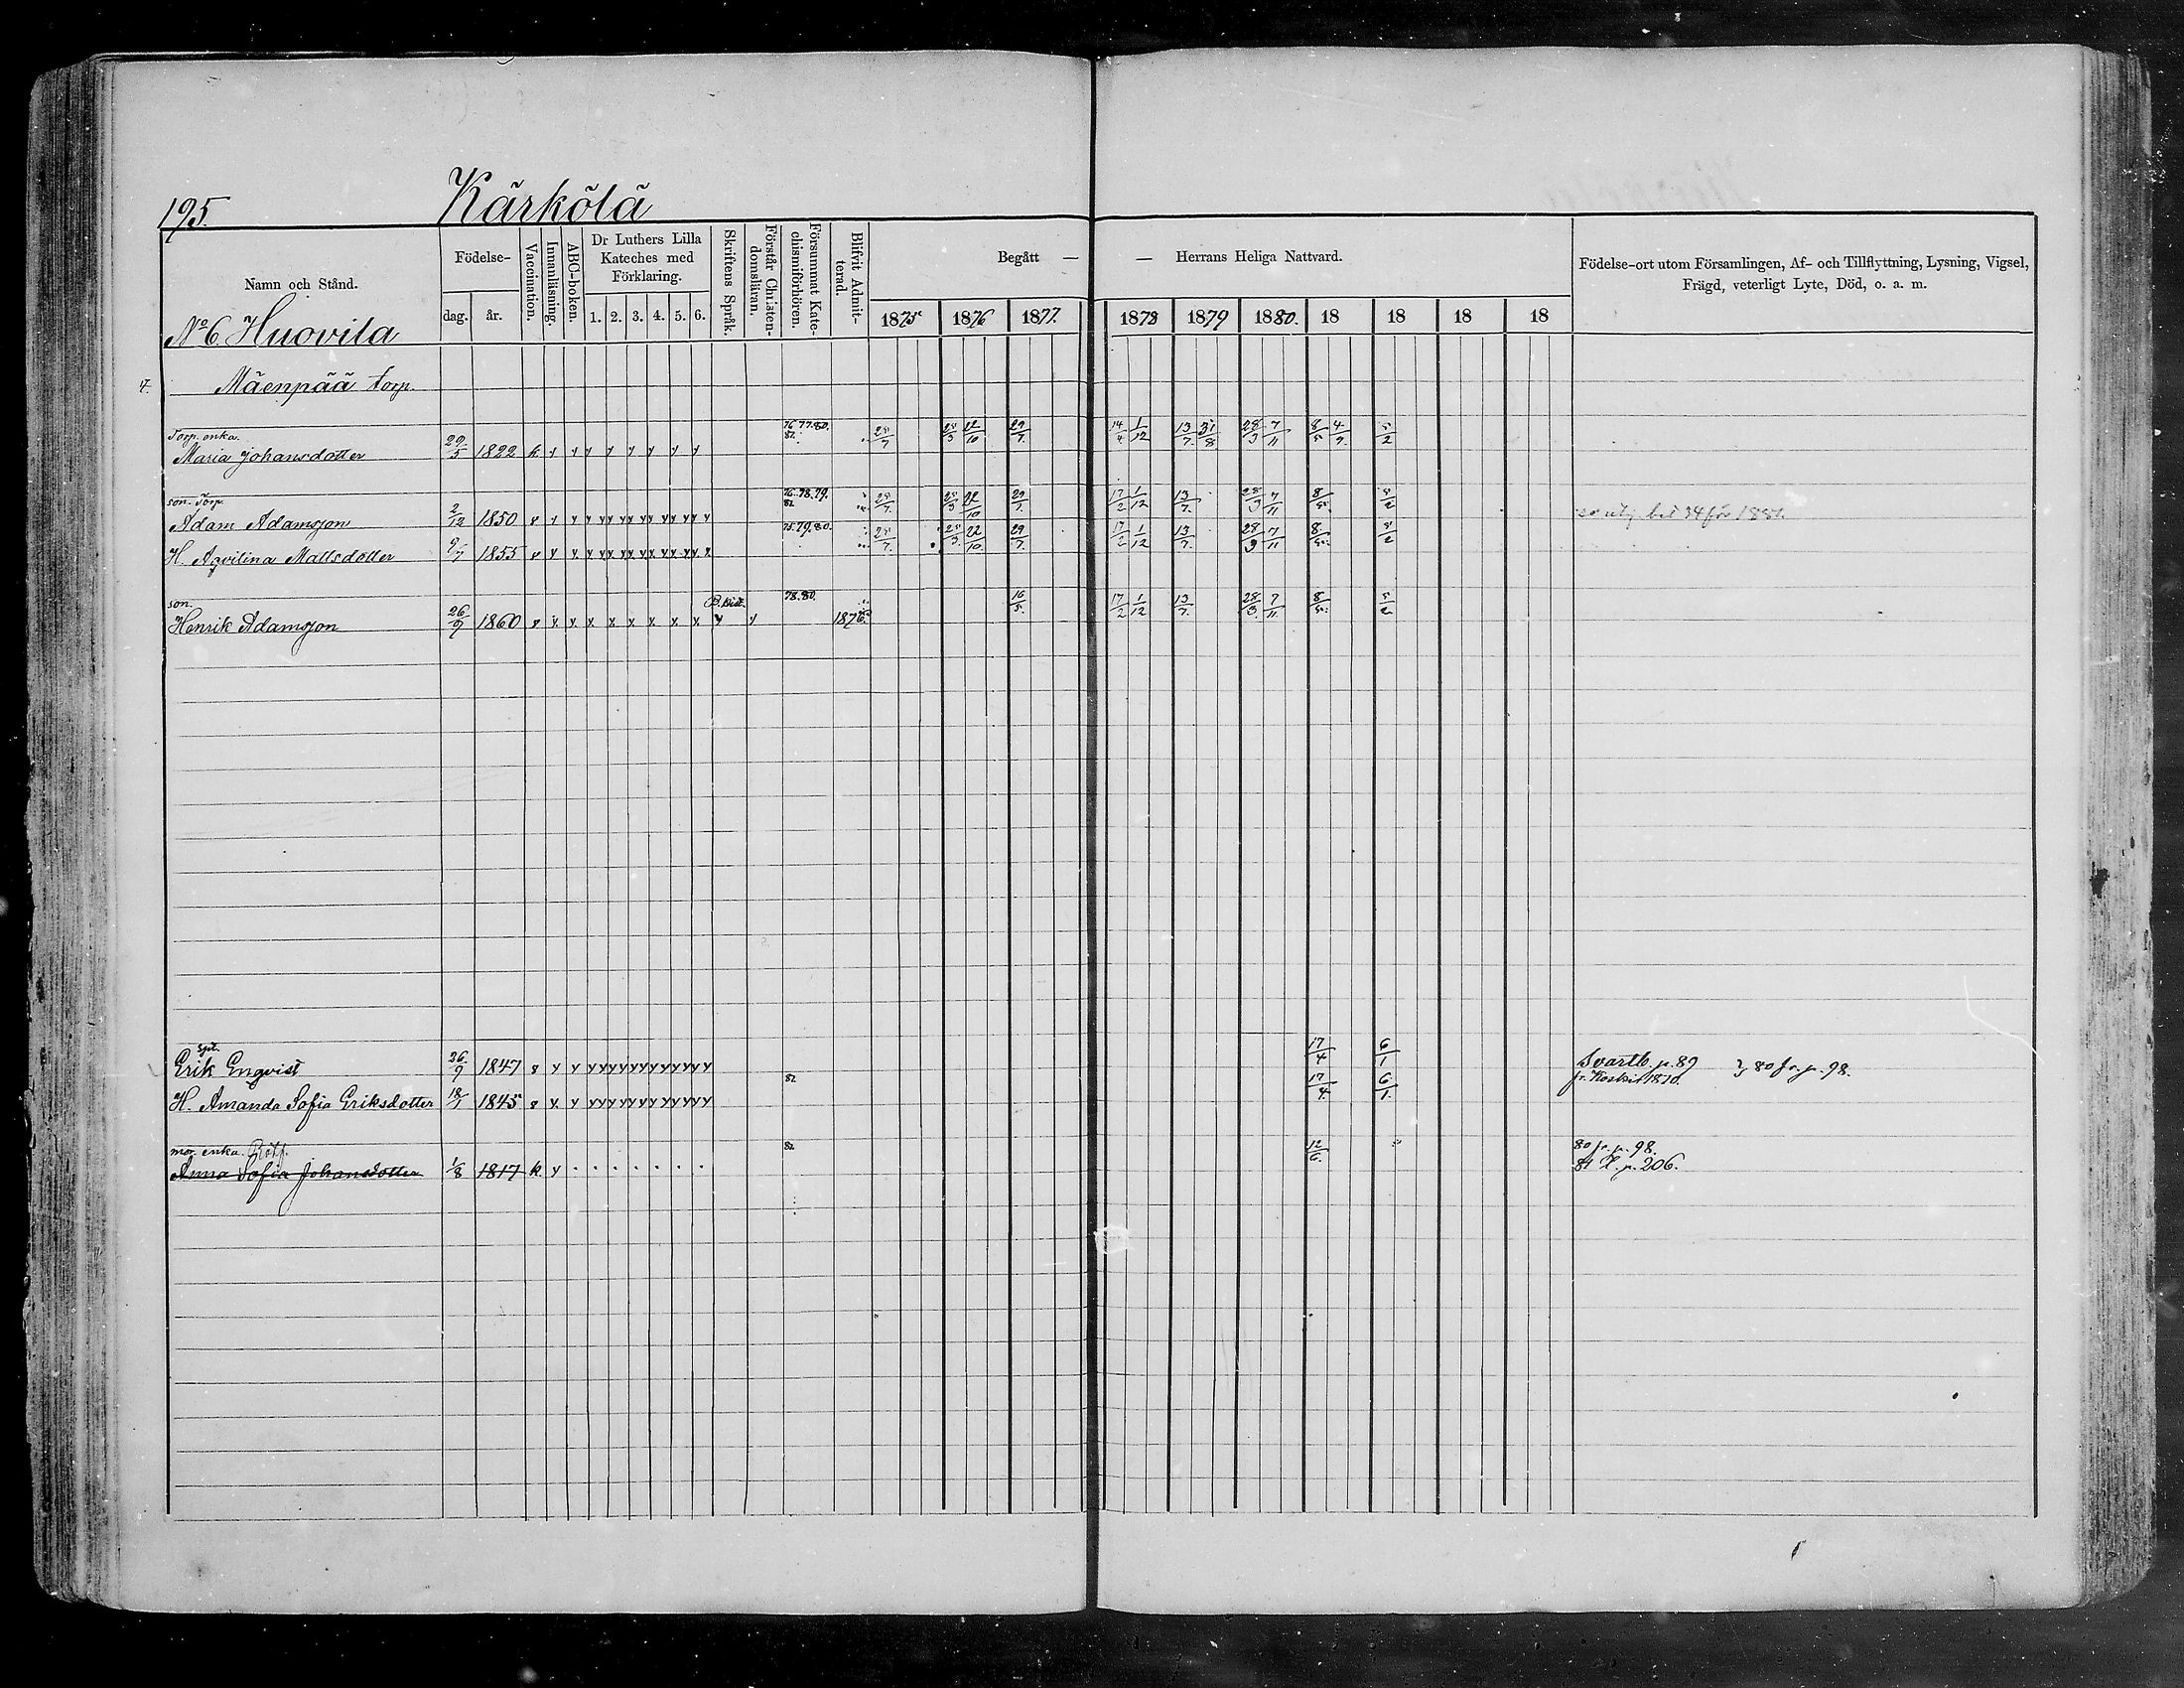 195.
Kärkölä
Namn och Stånd.
Födelse-
dag.
år.
Vaccination.
Innanläsning.
ABC-boken.
Dr Luthers Lilla
Kateches med
Förklaring.
1. 2. 3. 4. 5. 6.
Skriftens Språk.
Förstår Christen-
domsläran.
Försummat Kate-
chismiförhören.
Blifvit Admit-
terad.
Begått — — Herrans Heliga Nattvard.
1875 1876 1877. 1878 1879 1880. 18 18 18 18
Födelse-ort utom Församlingen, Af- och Tillflyttning, Lysning, Vigsel,
Frägd, veterligt Lyte, Död, o. a. m.
No 6. Huovila
7. Mäenpää torp.
Torp. enka. 76 77. 80. 82.
Maria Johansdotter 29/5 1822 k. 28/7 28/3 22/10 29/7. 14/4 1/12 13/7. 31/8 28/3 7/11 8/5 4/9. 5/2
son. Torp. 76. 78. 79. 82.
Adam Adamsson 2/12 1850 v 28/7. 28/3 22/10 29/7. 17/2 1/12 13/7. 28/3 7/11 8/5. 5/2
75. 79. 80.
H. Aqvilina Mattsdotter 9/7 1855 v 28/7. 28/3. 22/10. 29/7. 17/2 1/12 13/7. 28/3 7/11 8/5. 5/2
son. 78. 80.
Henrik Adamsson 26/9 1860 v 1876. 16/5. 17/2 1/12 13/7. 28/3. 7/11. 8/5. 5/2
Erik Enqvist 26/9 1847 v 17/4 6/1 Svartb. p. 89 80 fr. p. 98.
82. fr. Koskis 1870.
H. Amanda Sofia Eriksdotter 18/1 1845 v 17/4. 6/1.
mor. enka. 82. 12/6. 80 fr. p. 98.
Anna Sofia Johansdotter 1/8 1817 k. 81 t. p. 206.